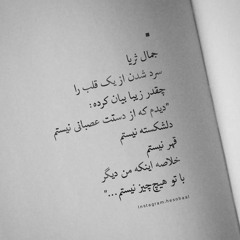 جمال ثریا
سرد شدن از یک قلب را
چقدر زیبا بیان کرده:
"دیدم که از دستت عصبانی نیستم
دلشکسته نیستم
قهر نیستم
خلاصه اینکه من دیگر
با تو هیچ‌چیز نیستم..."